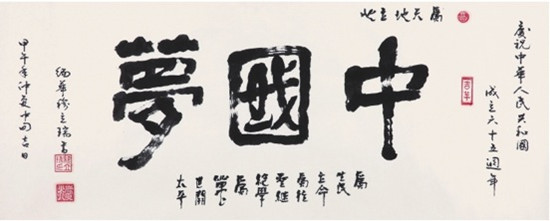 慶祝中華人民共和國
成立六十五週年
中國夢
爲天地立心
爲
生民
立命
爲往
聖繼
絕學
爲
萬
世開
太平
緬華 立瑞書
甲午年仲夏中旬吉日